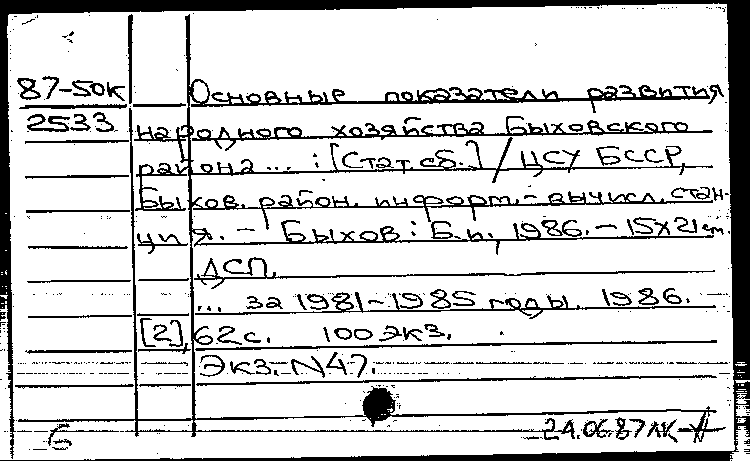 87-50к Основные показатели развития
2533 народного хозяйства Быховского
района... : [Стат. сб.] / ЦСУ БССР,
Быхов. район. информ.-вычисл. стан-
ция. – Быхов : Б.и., 1986. – 15х21 см.
ДСП.
... за 1981-1985 годы. 1986.
[2], 62 с. 100 экз.
Экз. N47.
6 24.06.87